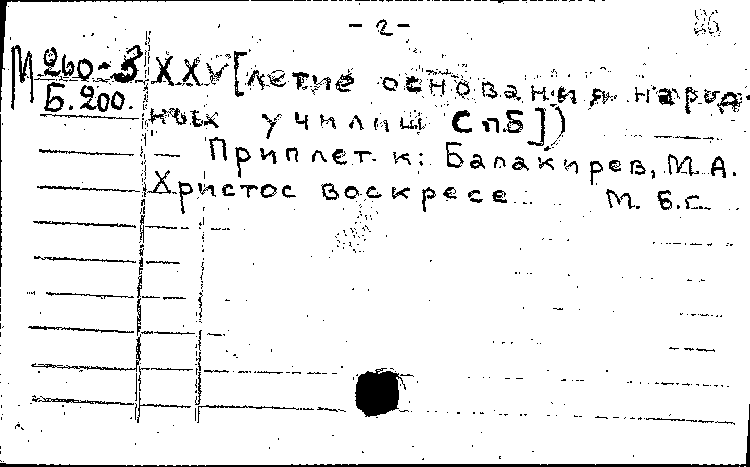 - 2 -
26
М 260-3 XXV [летие основания народ-
Б.200. ных училищ СПБ])
Приплет. к: Балакирев, М.А.
Христос воскресе М. Б.г.